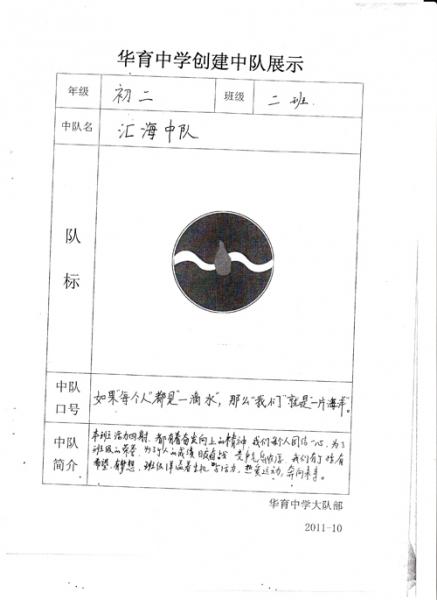 华育中学创建中队展示
年级 初二 班级 二班
中队名 汇海中队
队标
中队口号 如果"每个人"都是"一滴水"，那么"我们"就是"一片海洋"。
中队简介 本班活力四射，都有着奋发向上的精神，我们每个人团结一心，为了
班级的荣誉，为了个人的成绩
希望，有梦想，班级洋溢着生机与活力，热爱运动，奔向未来。
华育中学大队部
2011-10